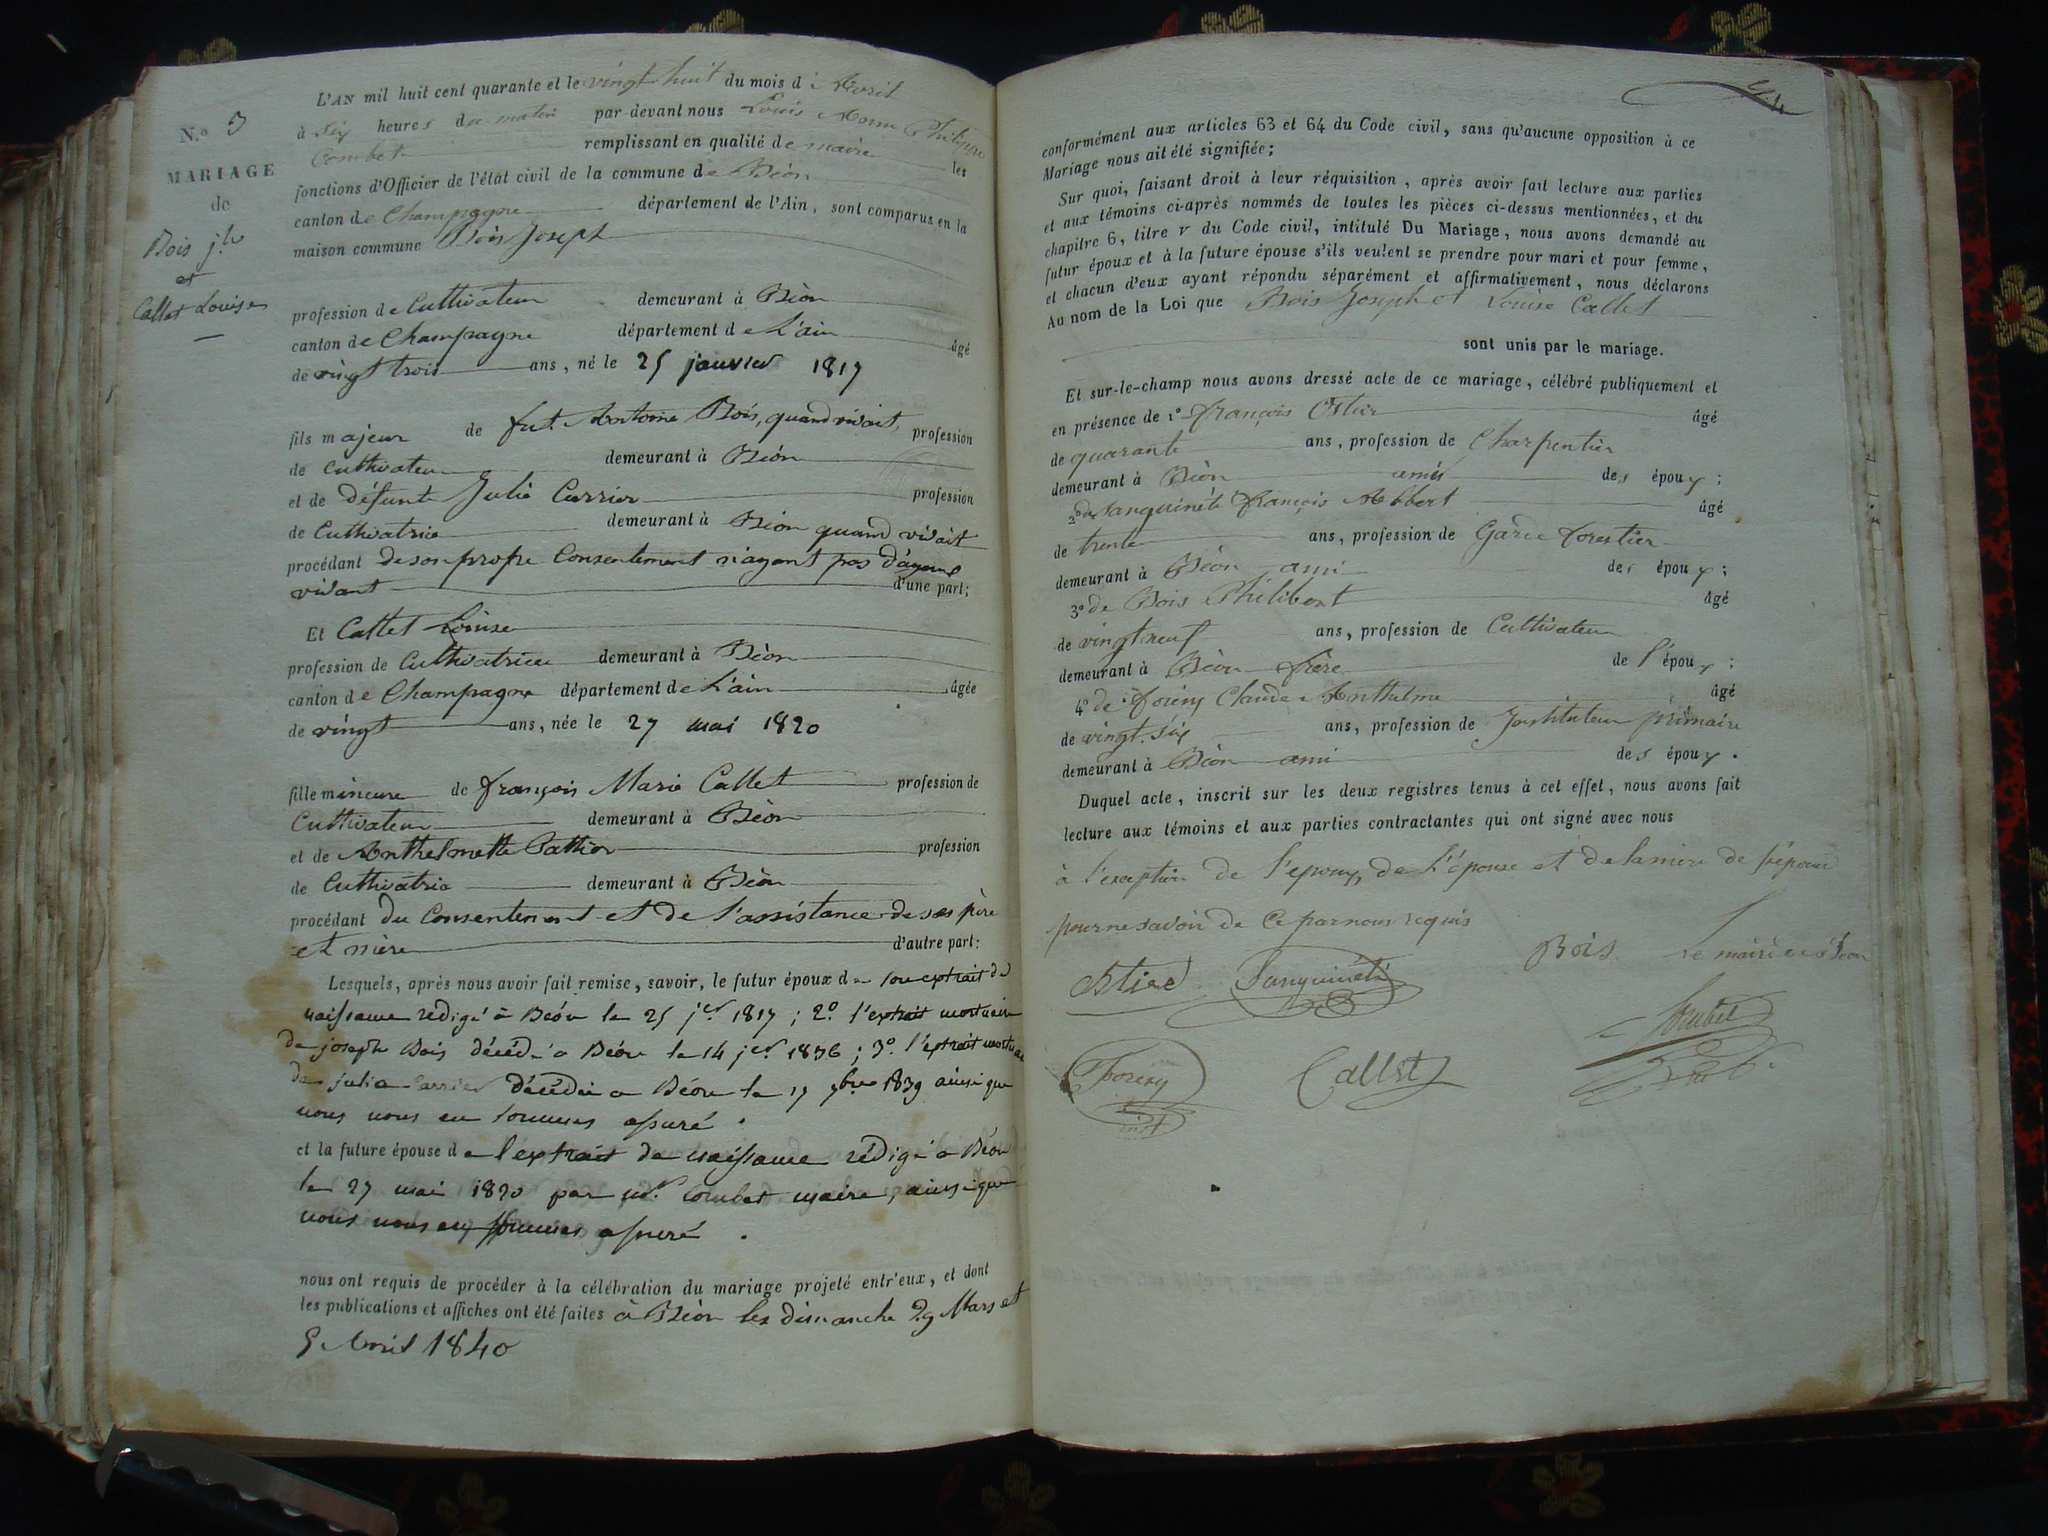 N.o 3
MARIAGE
de
Bois j.h
et
Callet Louise
L'AN mil huit cent quarante et le vingt huit du mois d'Avril
à six heures du matin par-devant nous Louis Philippe
Combet remplissant en qualité de maire les
fonctions d'Officier de l'état civil de la commune de Béon
canton de Champagne département de l'Ain, sont comparus en la
maison commune Bois Joseph
profession de Cultivateur demeurant à Béon
canton de Champagne département de L'ain âgé
de vingt trois ans, né le 25 janvier 1817
fils majeur de fut Antoine Bois, quand vivait, profession
de cultivateur demeurant à Béon
et de défunte Julie Carrier profession
de Cultivatrice demeurant à Béon quand vivait
procédant de son propre Consentement n'ayant pas d'ayeux
vivant d'une part;
Et Callet Louise
profession de Cultivatrice demeurant à Béon
canton de Champagne département de L'ain âgée
de vingt ans, née le 27 mai 1820
fille mineure de françois Marie Callet profession de
Cultivateur demeurant à Béon
et de Anthelmette profession
de Cultivatrice demeurant à Béon
procédant du Consentement et de l'assistance de ses père
et mère d'autre part:
Lesquels, après nous avoir fait remise, savoir, le futur époux de son extrait de
naissance rédigé à Béon le 25 j.er 1817; 2.o l'extrait mortuaire
de joseph Bois décédé a Béon le 14 j.er 1836; 3.o l'extrait mortuaire
de julie Carrier décédée a Béon le 17 9bre 1839 ainsi que
nous nous en sommes assuré.
et la future épouse de l'extrait de naissance rédigé a Béon
le 27 mai 1820 par mr. Combet maire, ainsi que
nous nous en sommes assuré.
nous ont requis de procéder à la célébration du mariage projeté entr'eux, et dont
les publications et affiches ont été faites à Béon les dimanche 29 Mars et
5 Avril 1840
conformément aux articles 63 et 64 du Code civil, sans qu'aucune opposition à ce
Mariage nous ait été signifiée;
Sur quoi, faisant droit à leur réquisition, après avoir fait lecture aux parties
et aux témoins ci-après nommés de toutes les pièces ci-dessus mentionnées, et du
chapitre 6, titre V du Code civil, intitulé Du Mariage, nous avons demandé au
futur époux et à la future épouse s'ils veulent se prendre pour mari et pour femme,
et chacun d'eux ayant répondu séparément et affirmativement, nous déclarons
Au nom de la Loi que Bois Joseph et Louise Callet
sont unis par le mariage.
Et sur-le-champ nous avons dressé acte de ce mariage, célébré publiquement et
en présence de 1o françois Ostier âgé
de quarante ans, profession de Charpentier
demeurant à Béon amis des époux;
2o de Sanguinéti françois Albert âgé
de trente ans, profession de Garde forestier
demeurant à Béon ami des époux;
3o de Bois Philibert âgé
de vingt neuf ans, profession de Cultivateur
demeurant à Béon frère de l'époux;
4o de Claude Anthelme âgé
de vingt-six ans, profession de Instituteur primaire
demeurant à Béon ami des époux.
Duquel acte, inscrit sur les deux registres tenus à cet effet, nous avons fait
lecture aux témoins et aux parties contractantes qui ont signé avec nous
à l'exception de l'époux, de l'épouse et de la mère de l'épouse
pour ne savoir de ce par nous requis
Ostier Sanguinéti Bois Le maire de Béon
Callet Combet